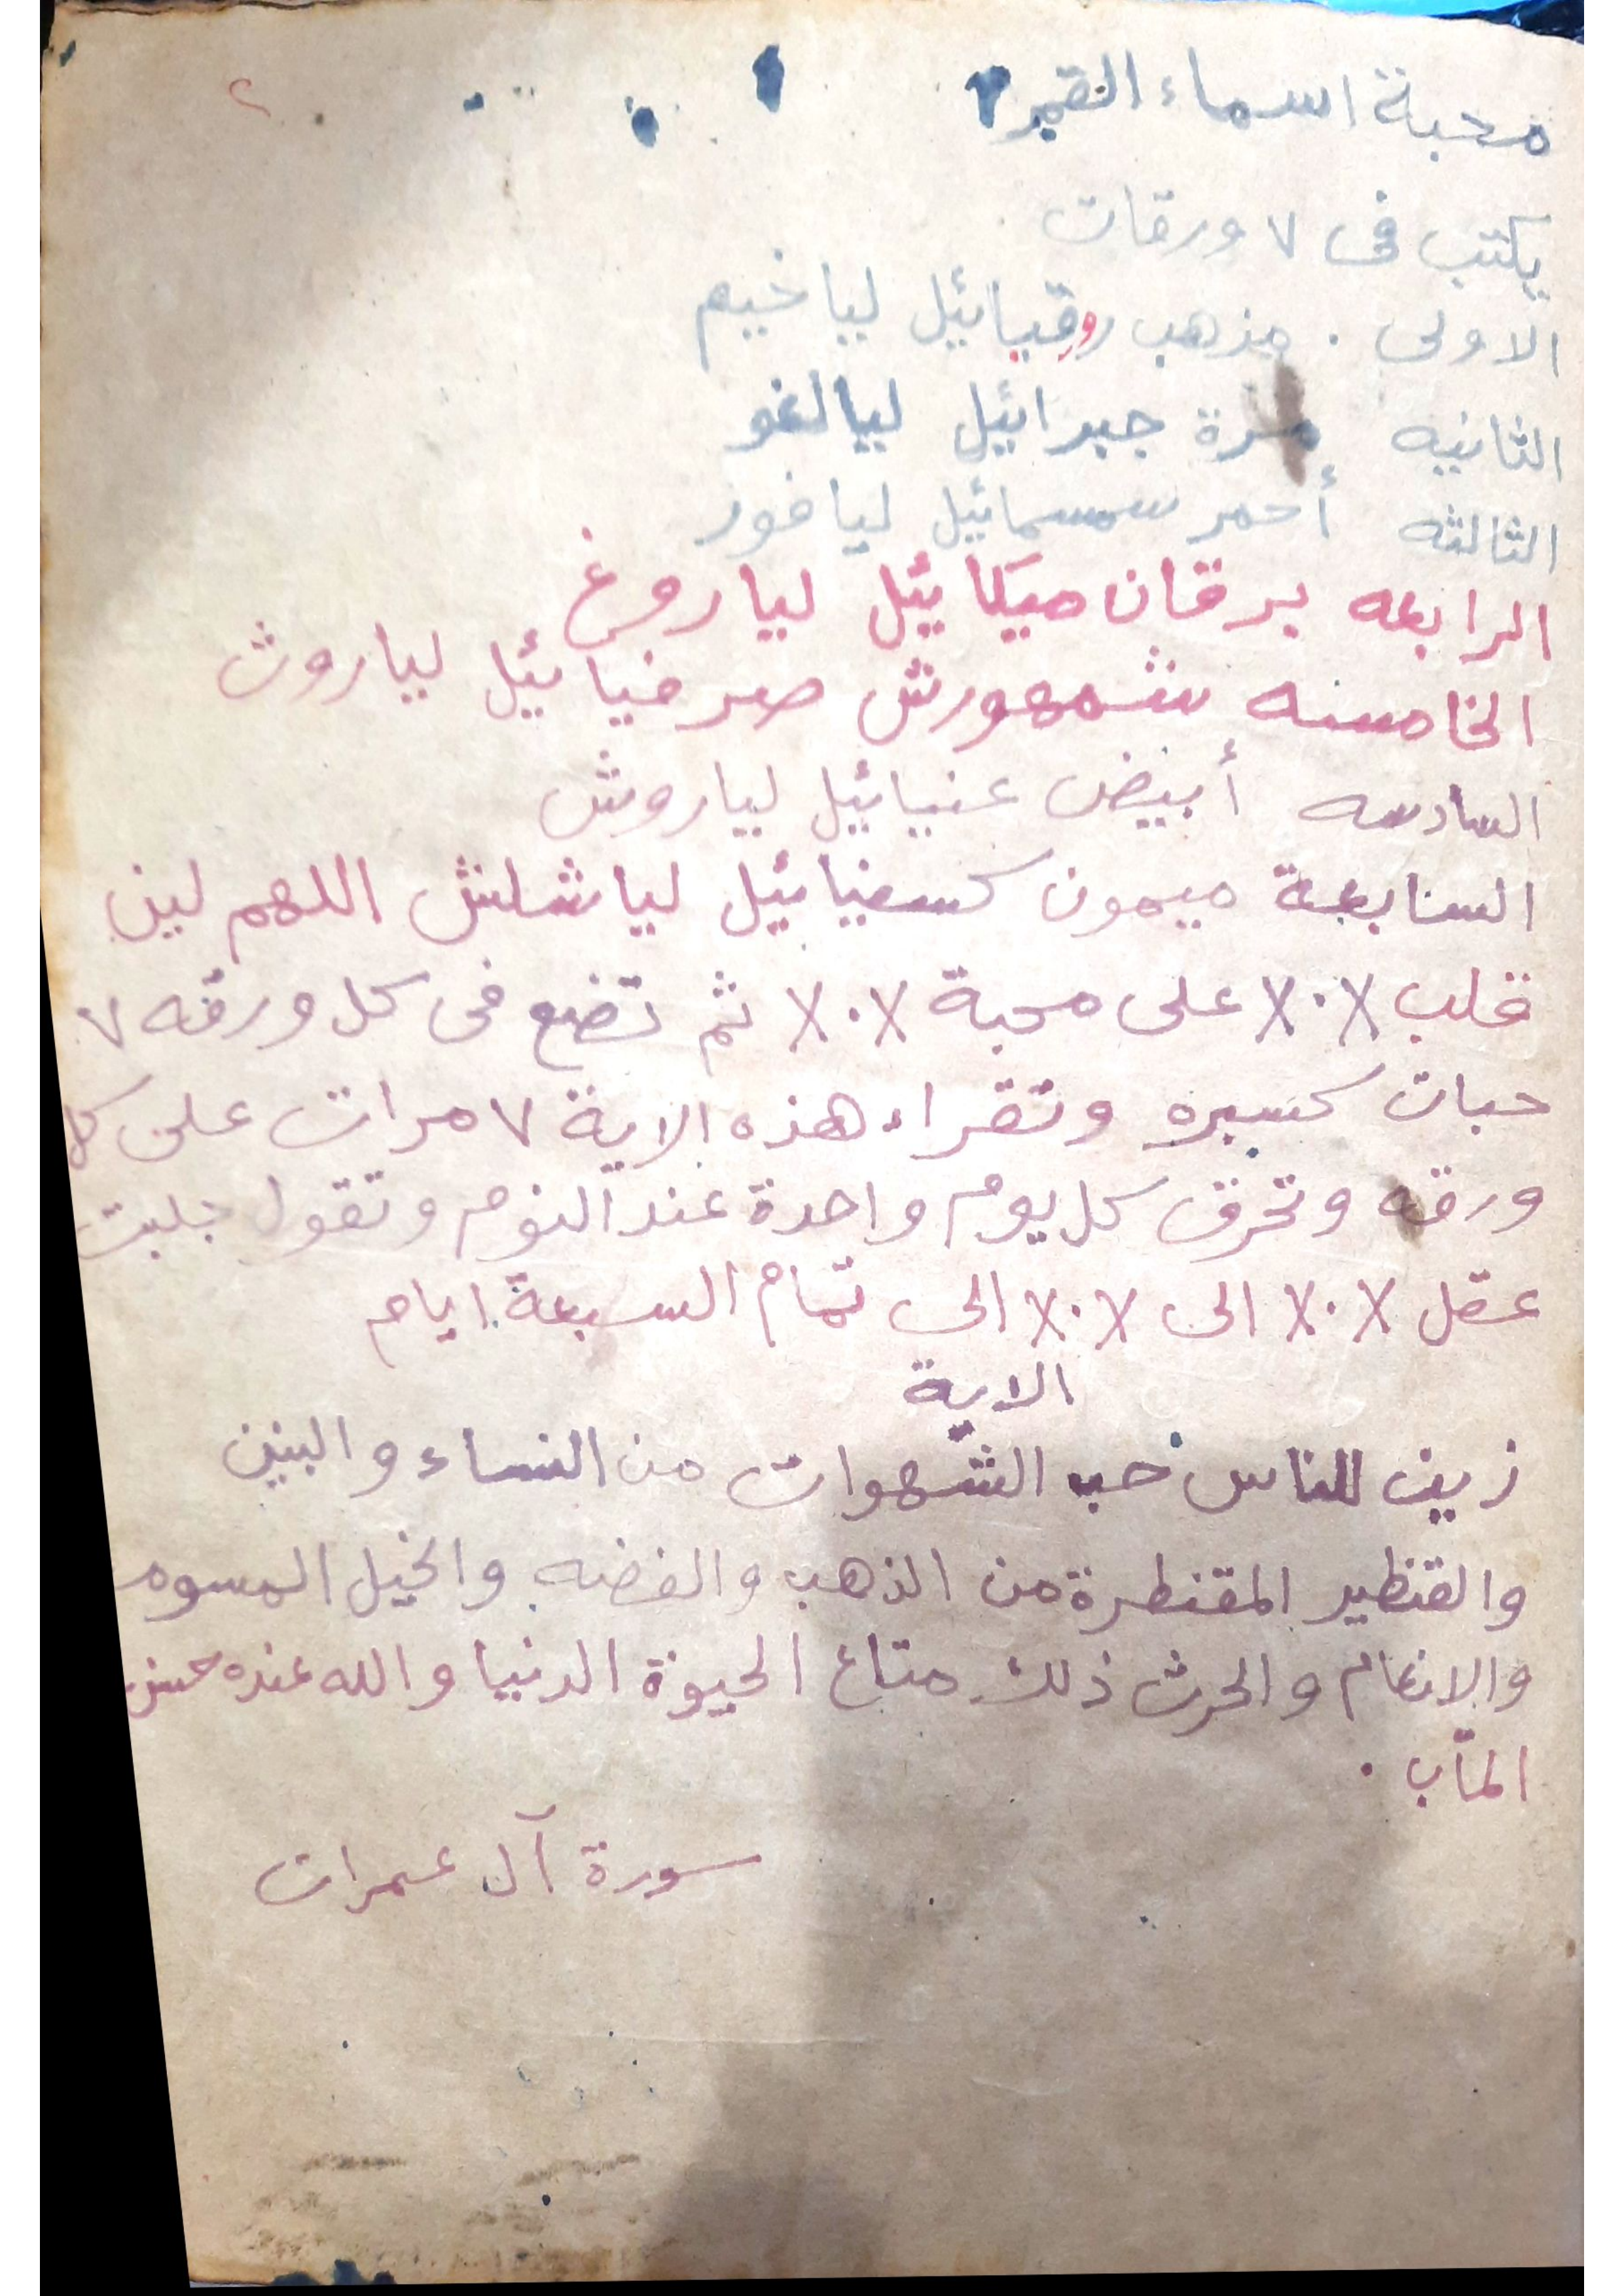 ٢
محبة اسماء القمر
يكتب فى ٧ ورقات
الاولى . مذهب روقيائيل ليا خيم
الثانيه مرة جبرائيل ليا لغو
الثالثه أحمر سمسمائيل ليا فور
الرابعه برقان ميكائيل ليا روغ
الخامسه شمهورش صرفيائيل ليا روث
السادسه أبيض عنيائيل ليا روش
السابعة ميمون كسفيائيل ليا شلش اللهم لين
قلب ٪ ٪ على محبة ٪ ٪ ثم تضع فى كل ورقه ٧
حبات كسبره وتقراء هذه الاية ٧ مرات على كل
ورقه وتحرق كل يوم واحدة عند النوم وتقول جلبت
عقل ٪ ٪ الى ٪ ٪ الى تمام السبعة ايام
الاية
زين للناس حب الشهوات من النساء والبنين
والقنطير المقنطرة من الذهب والفضه والخيل المسوم
والانعام والحرث ذلك متاع الحيوة الدنيا والله عنده حسن
المآب .
سورة آل عمران